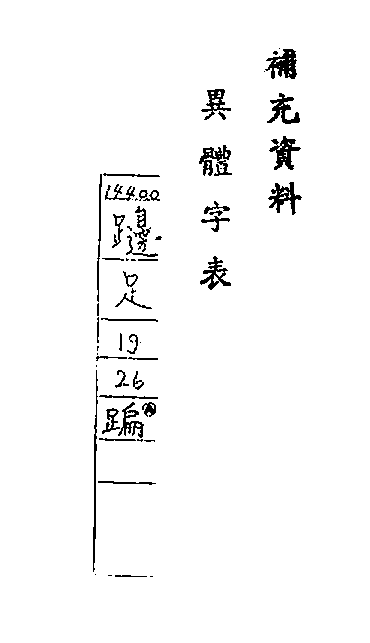 補充資料
異體字表
14400
足
19
26
蹁